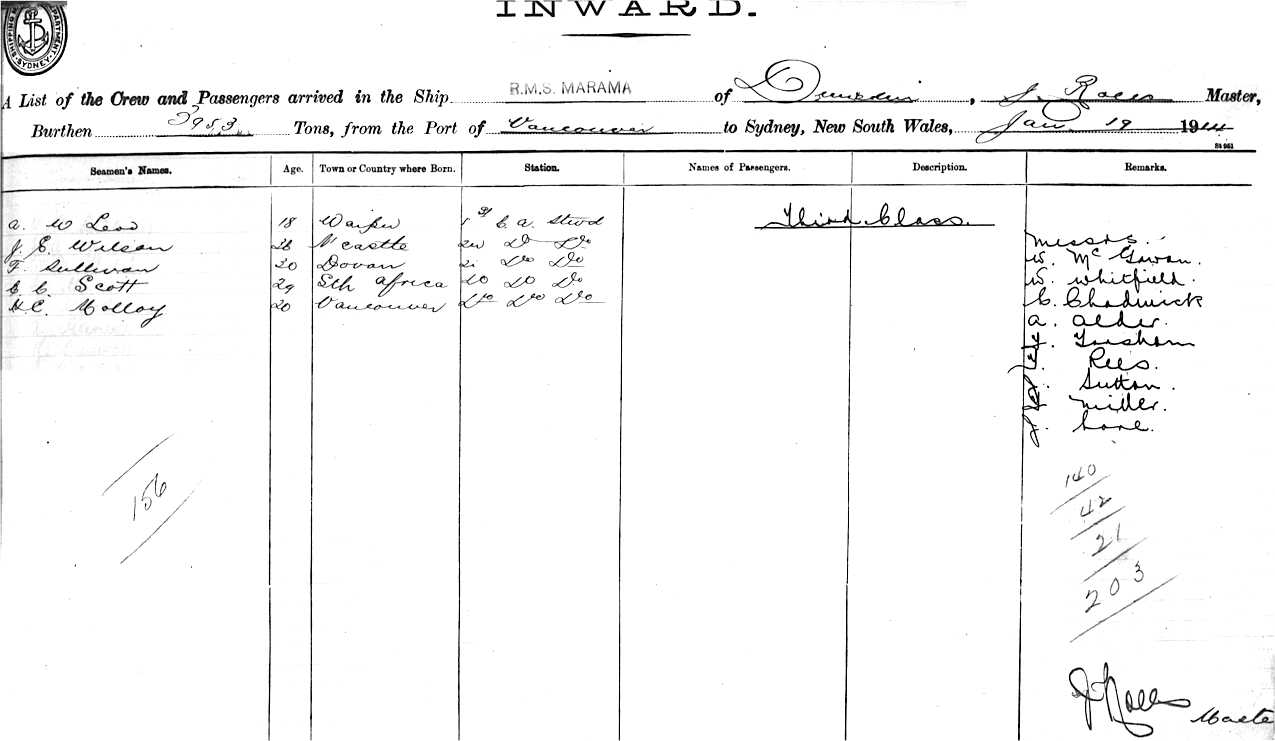 INWARD.
SHIPPING DEPARTMENT. SYDNEY
A List of the Crew and Passengers arrived in the Ship R.M.S. MARAMA of Dunedin, J. Rolls Master,
Burthen 3953 Tons, from the Port of Vancouver to Sydney, New South Wales, Jan 19 1914
Seamen's Names. Age. Town or Country where Born. Station. Names of Passengers. Description. Remarks.
Third Class.
a. W Leod 18 Waipu 1st C. a. Stwd
J. E. Wilson N'castle Do Do
Messrs.
F. Sullivan 20 Do Do
W. McGowan.
C. C. Scott 29 Sth Africa Do Do Do
W. Whitfield
H.C. Molloy 20 Vancouver Do Do Do
C. Chadwick
a. alder.
Rees.
Sutton.
Miller.
J. Lane.
156
140
42
21
203
J Rolls Maste